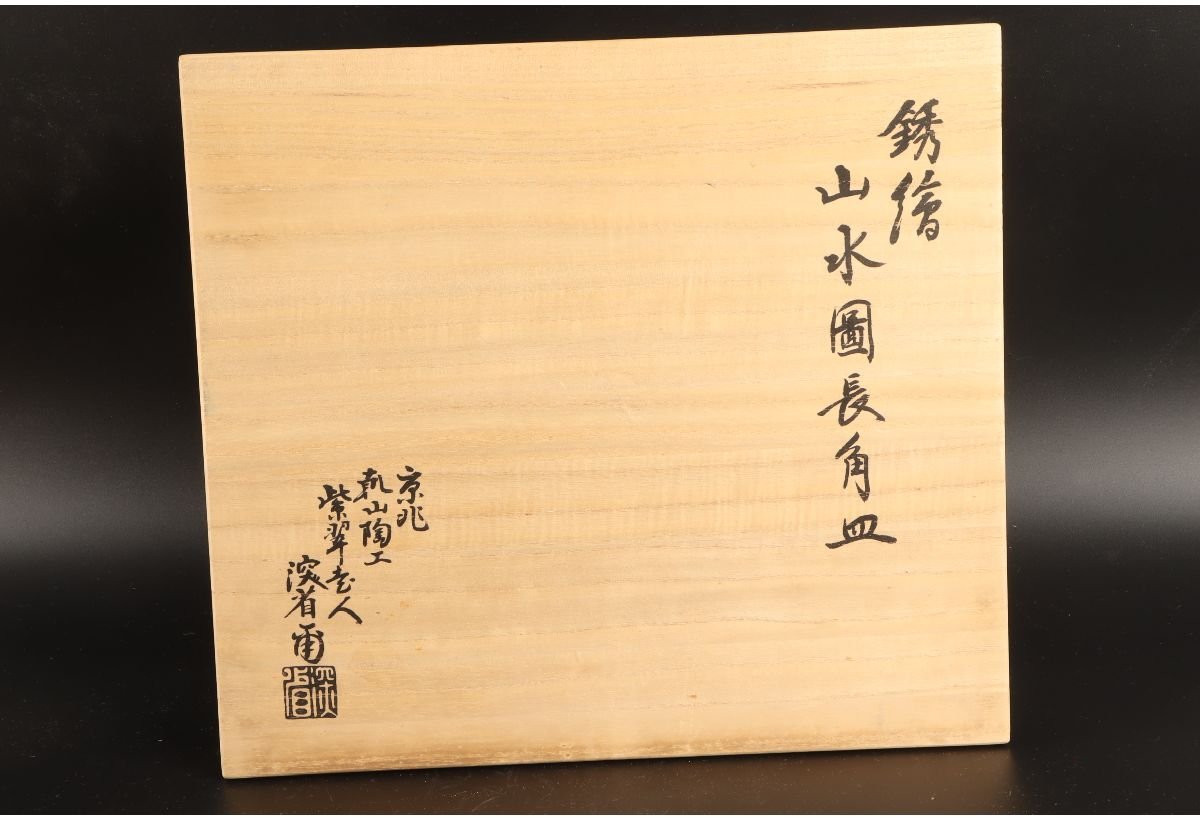 銹繪
山水圖長角皿
京兆
乾山陶工
紫翠老人
深省画
深省